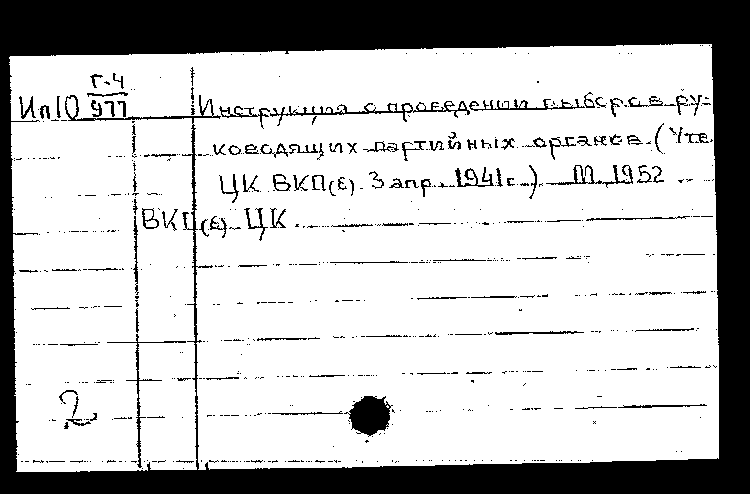 Г-4
Ип10 977 Инструкция о проведении выборов ру-
ководящих партийных органов. (Утв.
ЦК ВКП(б). 3 апр. 1941г.) М. 1952
ВКП(б). ЦК.
2